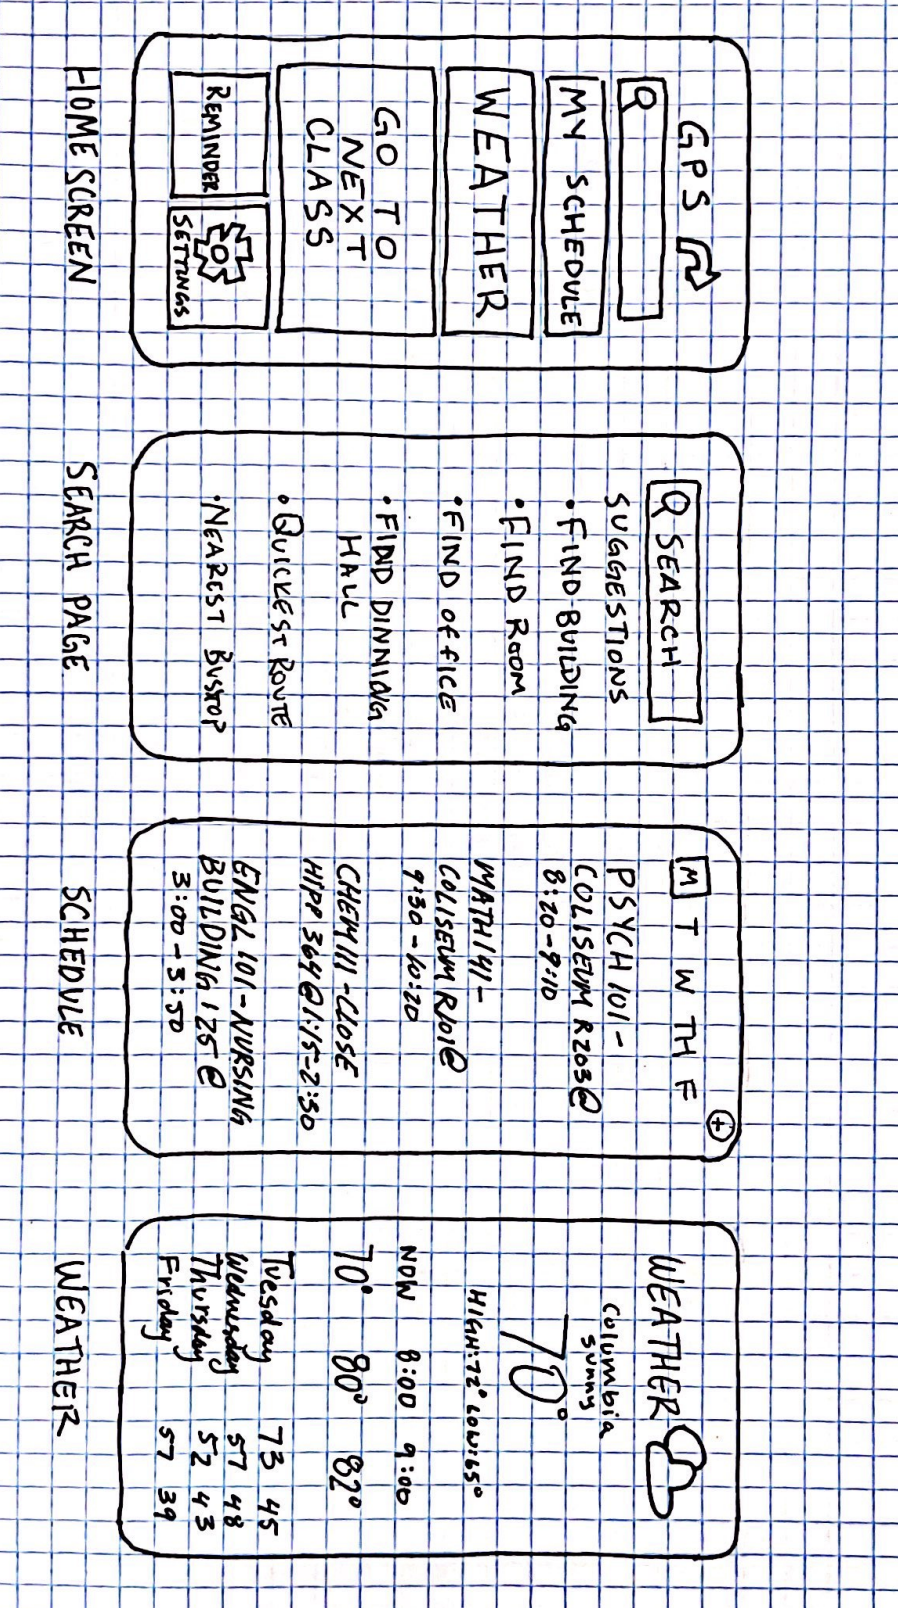 GPS
MY SCHEDULE
WEATHER
GO TO
NEXT
CLASS
REMINDER
SETTINGS
HOME SCREEN
SEARCH
SUGGESTIONS
• FIND BUILDING
• FIND ROOM
• FIND OFFICE
• FIND DINNING
HALL
• QUICKEST ROUTE
• NEAREST BUSTOP
SEARCH PAGE
M T W TH F
+
PSYCH 101 -
COLISEUM R203@
8:20-9:10
MATH 141 -
COLISEUM R101@
9:30-10:20
CHEM 111 - CLOSE
HIPP 364@1:15-2:30
ENGL 101 - NURSING
BUILDING 125@
3:00-3:50
SCHEDULE
WEATHER
Columbia
sunny
70°
HIGH:72° LOW:65°
NOW 8:00 9:00
70° 80° 82°
Tuesday 73 45
Wednesday 57 48
Thursday 52 43
Friday 57 39
WEATHER